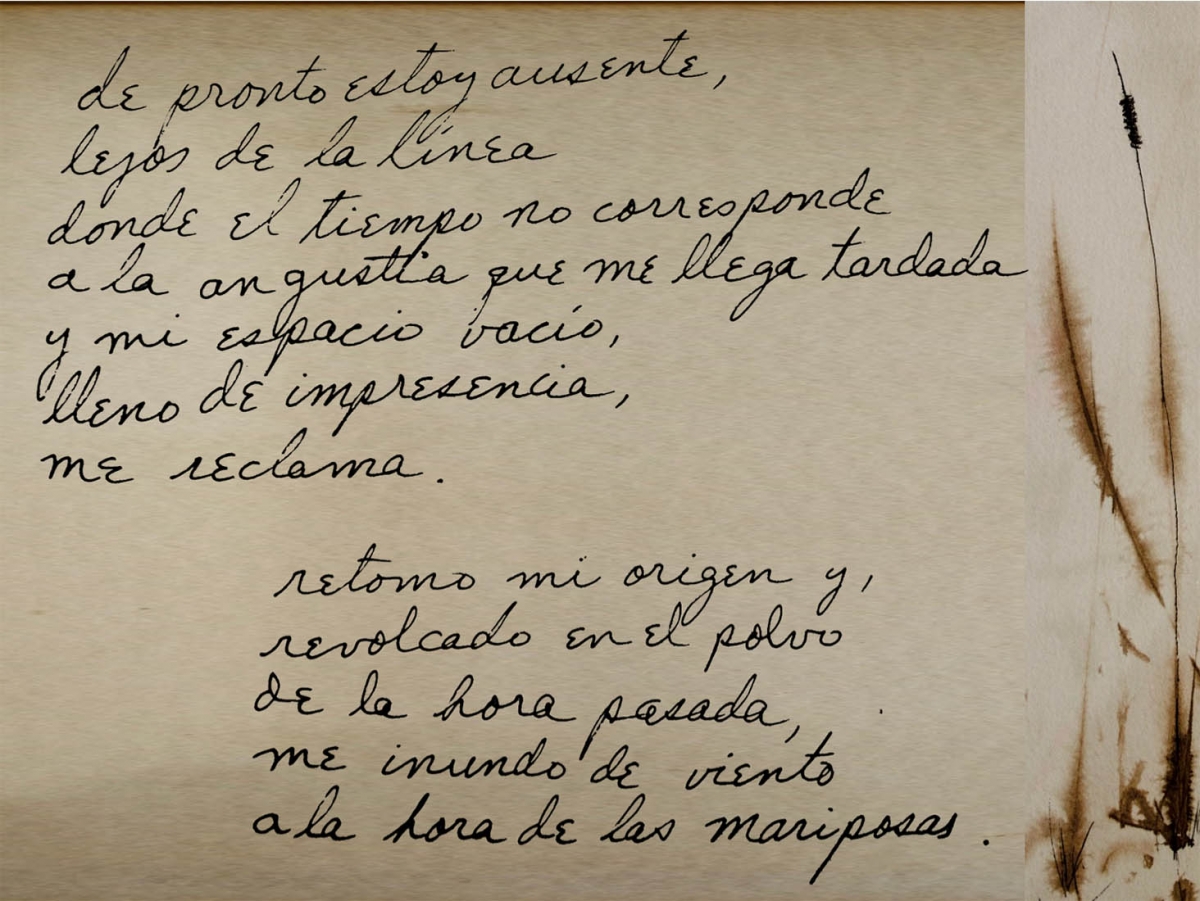 de pronto estoy ausente,
lejos de la línea
donde el tiempo no corresponde
a la angustia que me llega tardada
y mi espacio vacío,
lleno de impresencia,
me reclama.
retomo mi origen y,
revolcado en el polvo
de la hora pasada,
me inundo de viento
a la hora de las mariposas.